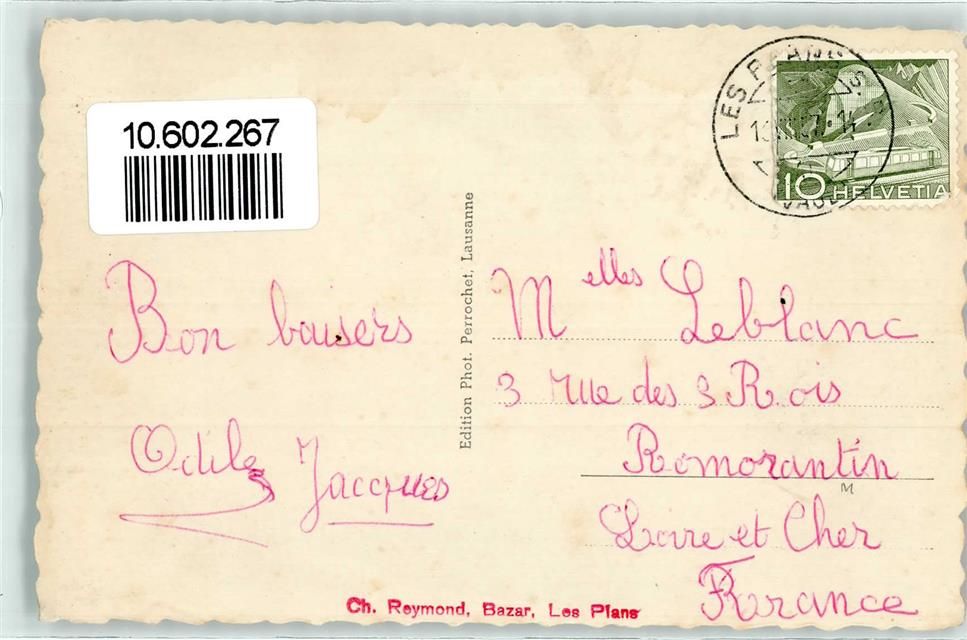 10.602.267
LES PLANS S.
14
10 HELVETIA
Edition Phot. Perrochet, Lausanne
Bon baisers
Odile Jacques
Melles Leblanc
3 rue des 3 Rois
Romorantin
M
Loire et Cher
France
Ch. Reymond, Bazar, Les Plans